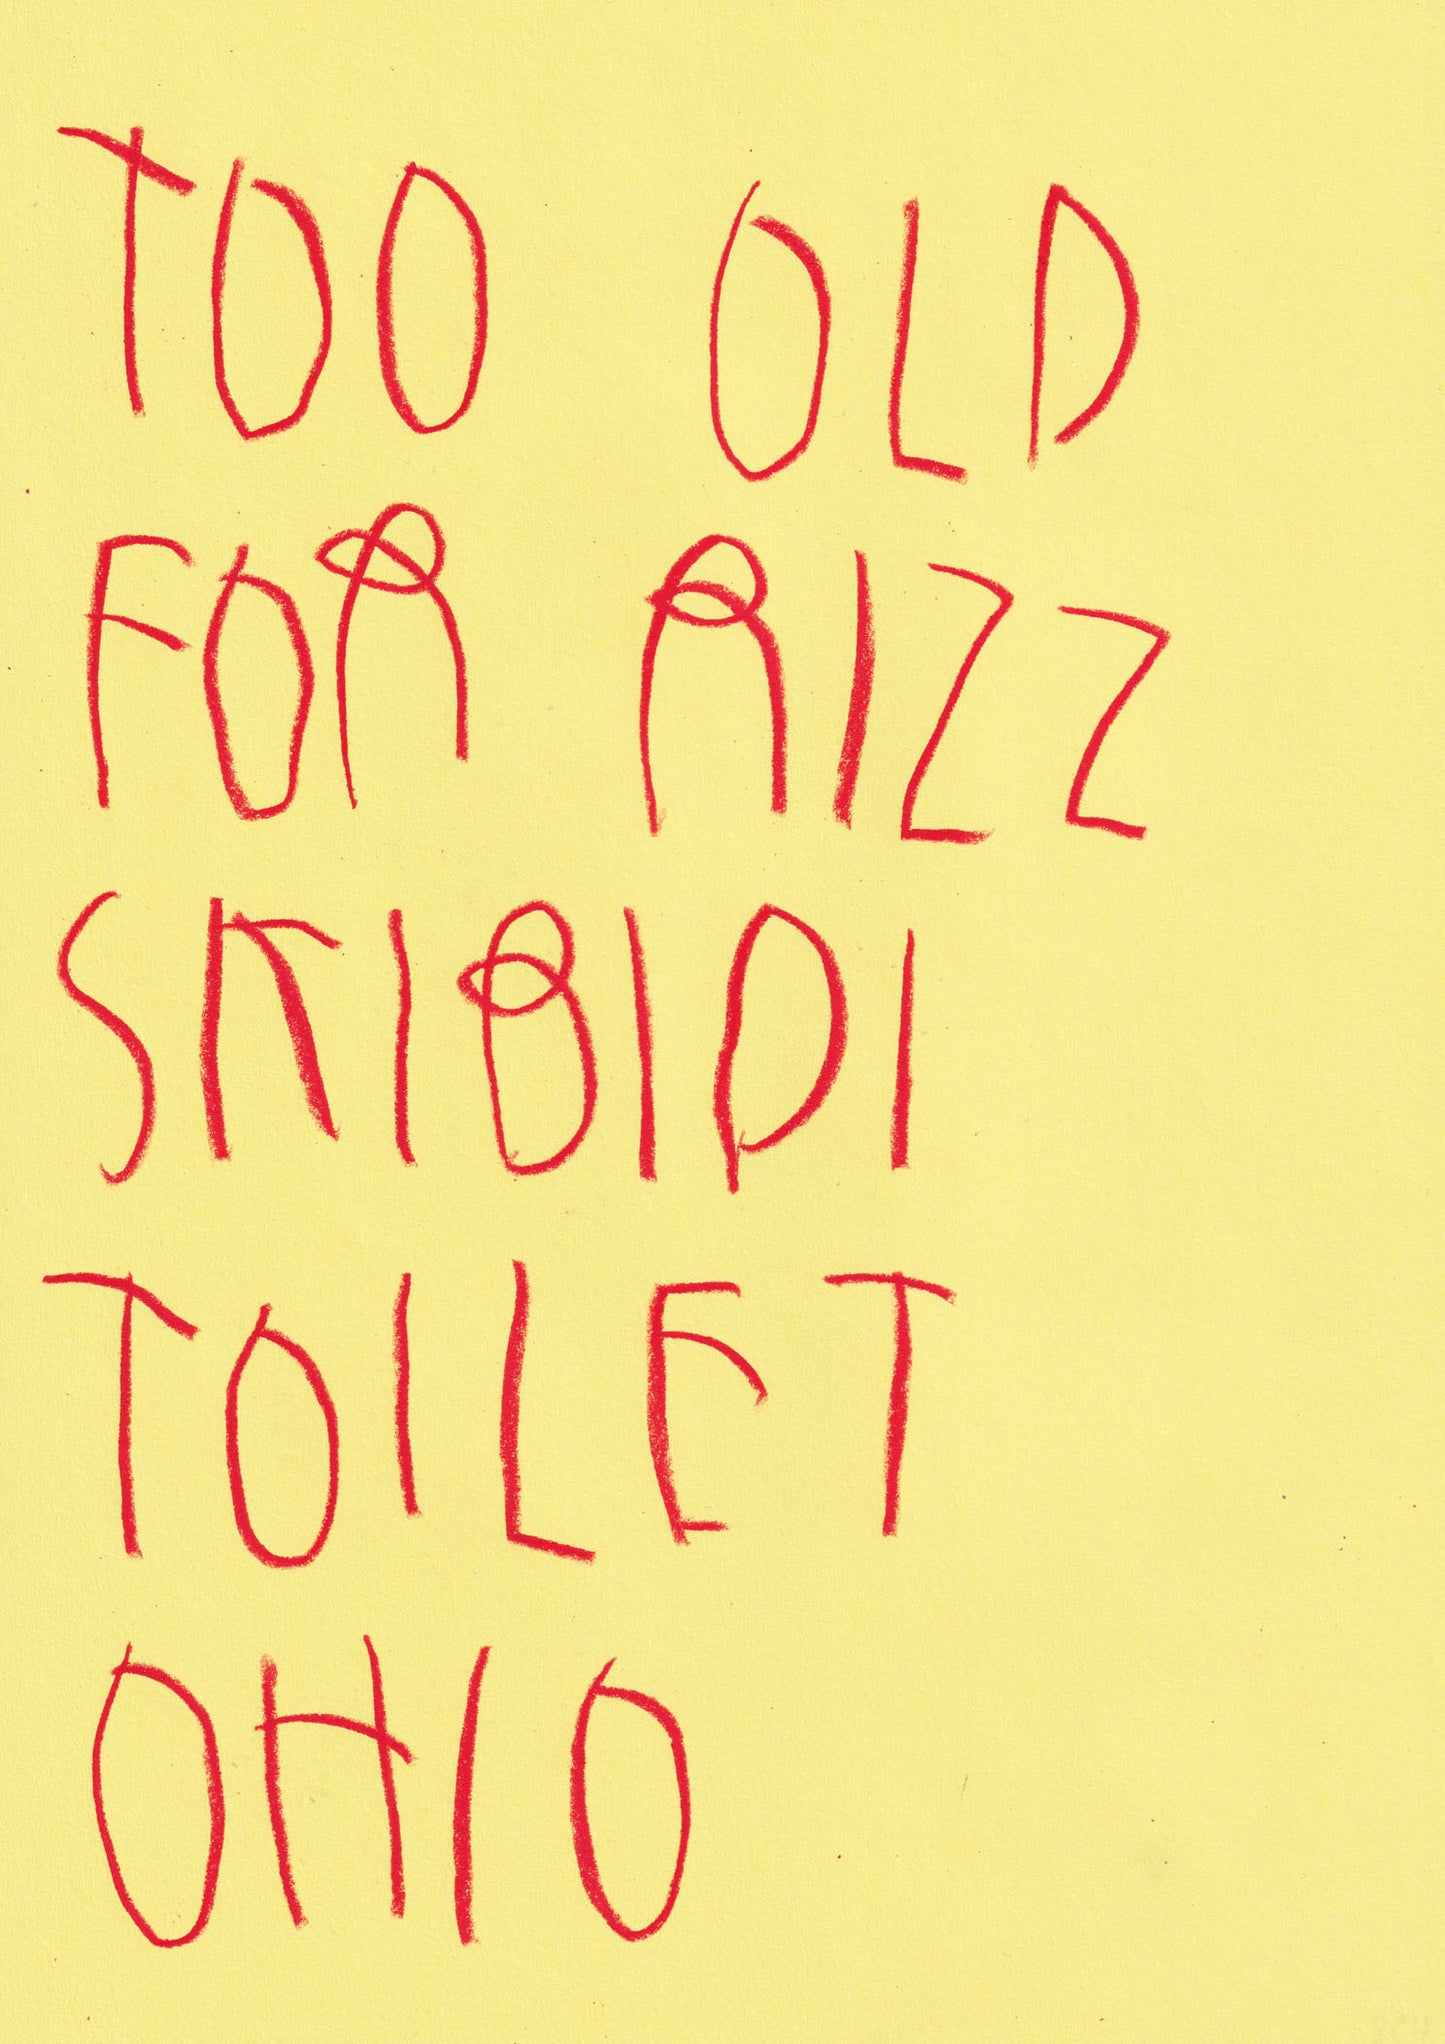 TOO OLD
FOR RIZZ
SKIBIDI
TOILET
OHIO